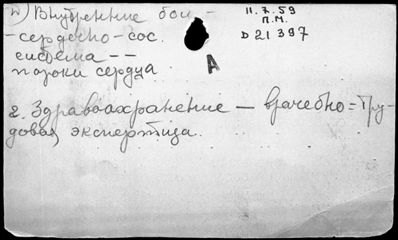 1) Внутренние бол –
– сердечно-сос.
система --
пороки сердца
11.7.59
П.М.
D 21 397
А
2. Здравоохранение – врачебно=тру-
довая экспертиза.